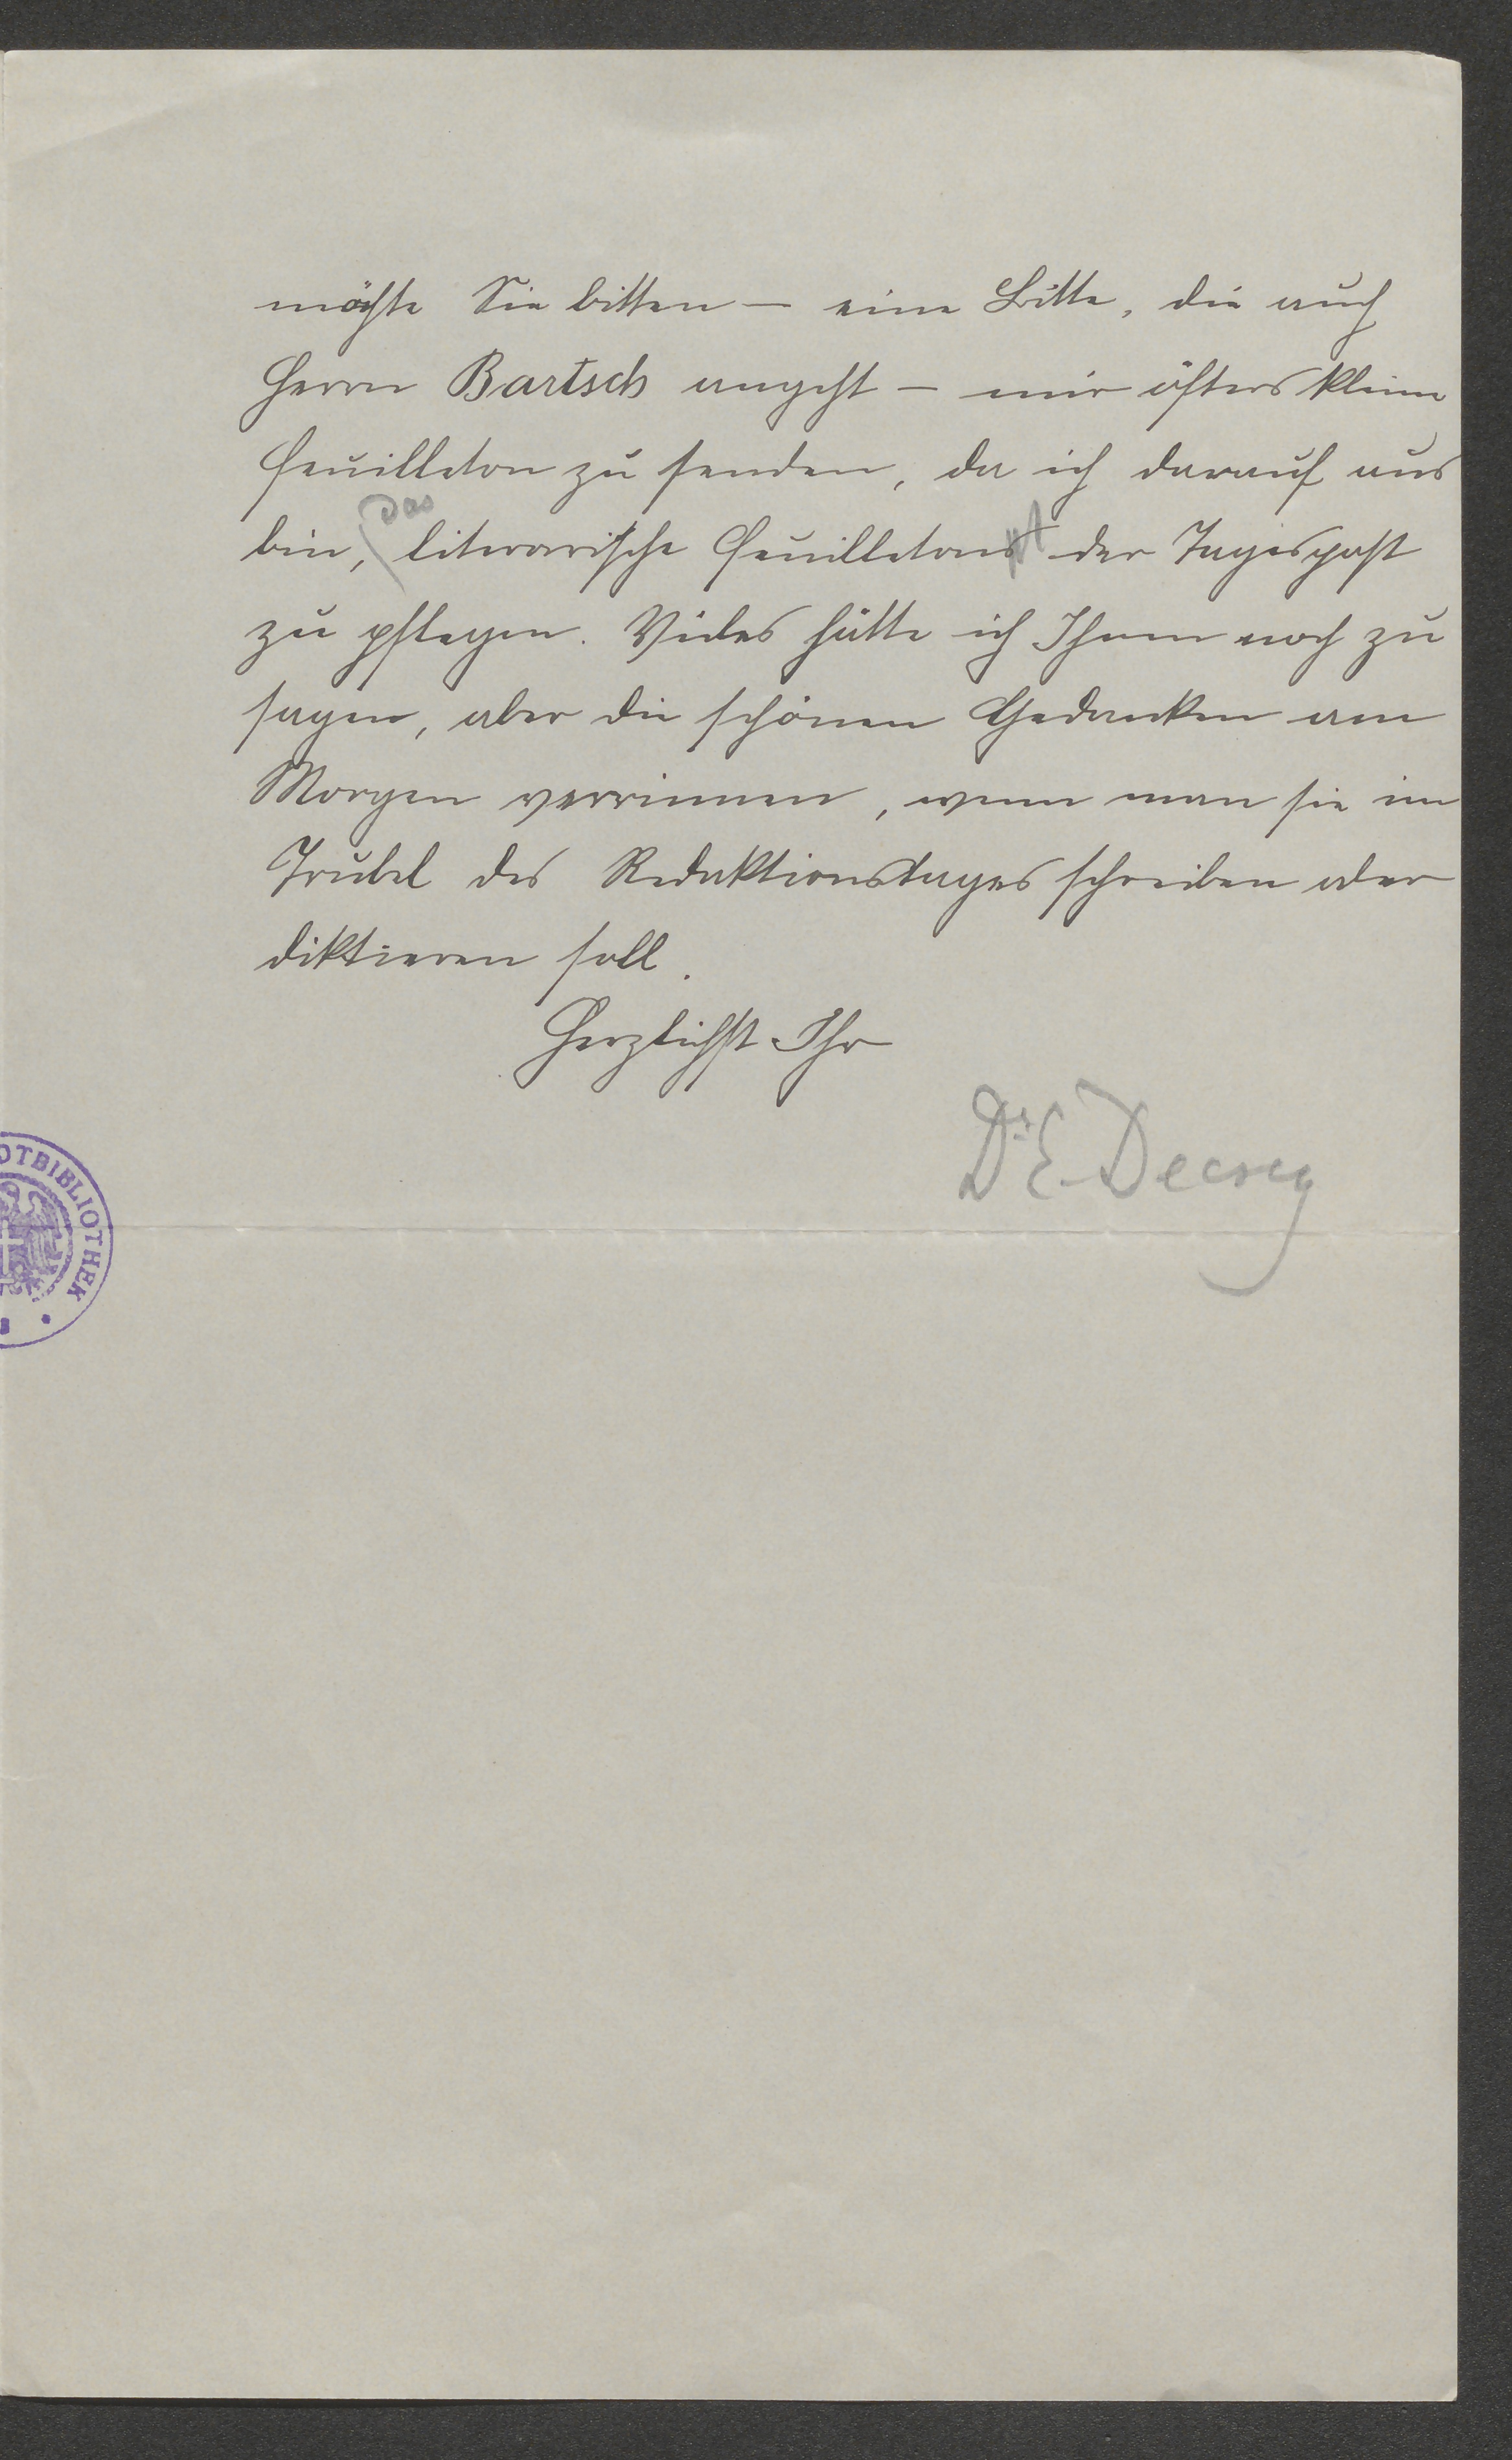 möchte Sie bitten – eine Bitte, die auch
Herrn Bartsch angeht – mir öfters kleine
Feuilleton zu senden, da ich darauf aus
bin, das literarische Feuilleton der Tagespost
zu pflegen. Vieles hätte ich Ihnen noch zu
sagen, aber die schönen Gedanken am
Morgen verrinnen, wenn man sie im
Trubel des Redaktionstages schreiben oder
diktieren soll.
Herzlichst Ihr
Dr E. Decsey
DTBIBLIOTHEK